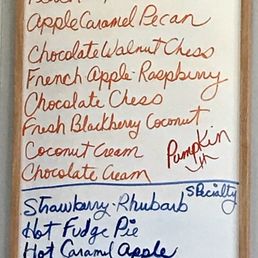 Apple Caramel Pecan
Chocolate Walnut Chess
French Apple-Raspberry
Chocolate Chess
Fresh Blackberry Coconut
Coconut Cream
Pumpkin
Chocolate Cream
Specialty
Strawberry-Rhubarb
Hot Fudge Pie
Hot Caramel Apple